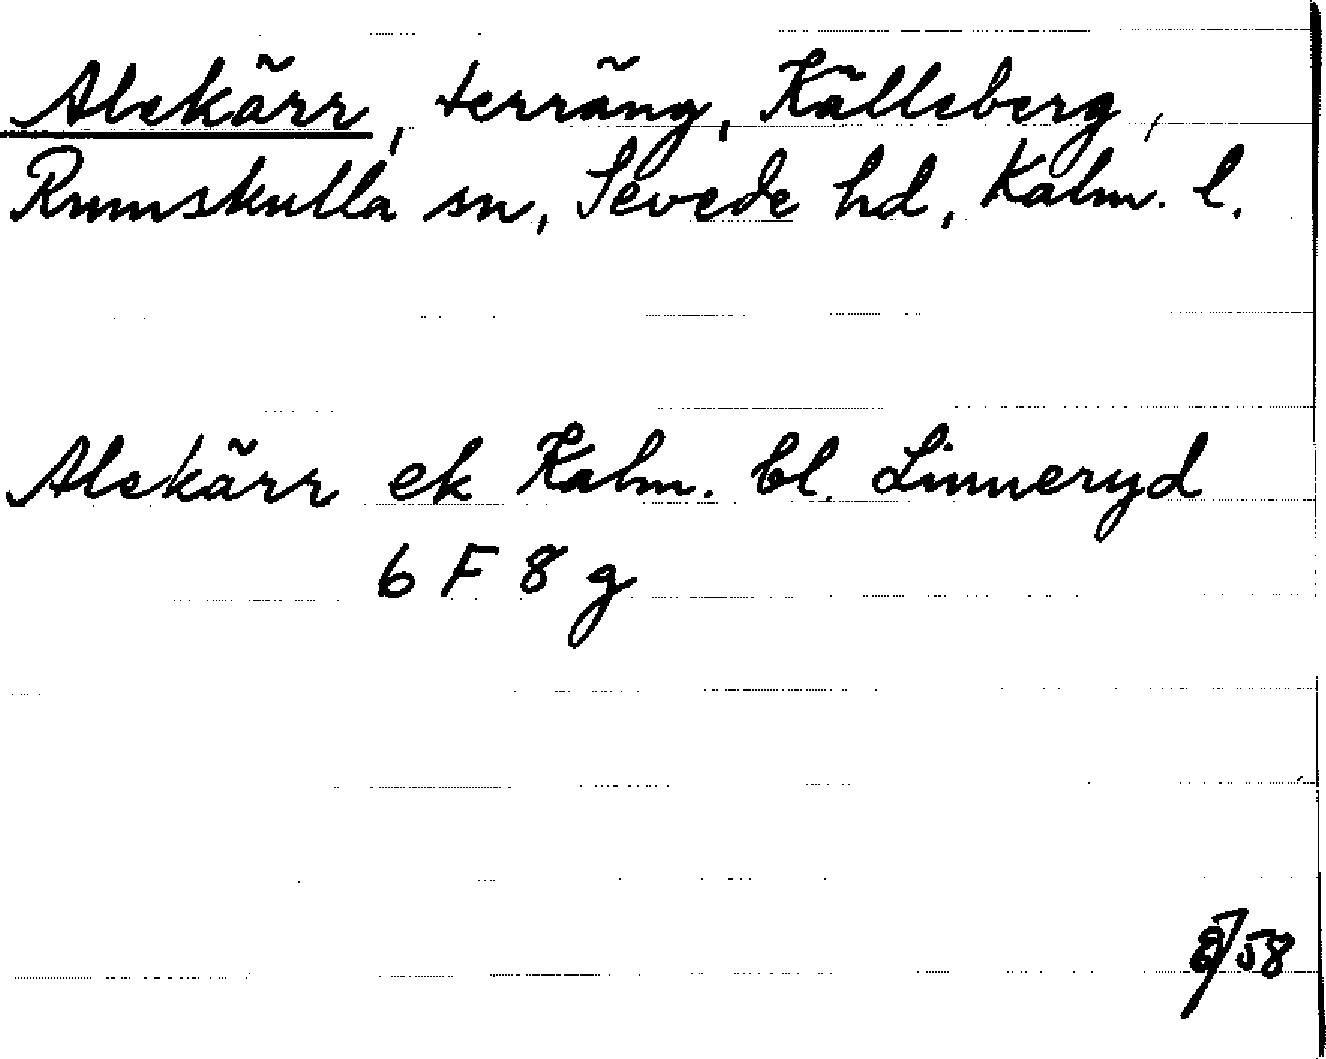 Alekärr, terräng, Källeberg,
Rumskulla sn, Sevede hd, Kalm. l.
Alekärr ek Kalm. bl. Linneryd
6 F 8 g
/58